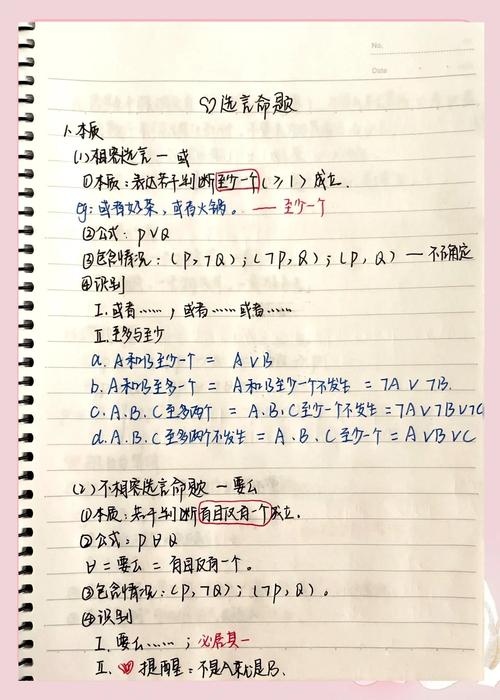 No.
Date
♡选言命题
1.本质
(1)相容选言一或
①本质:表达若干判断至少一个(≥1)成立.
eg:或者奶茶,或者火锅。——至少一个
②公式:P∨Q
③包含情况:(P,¬Q);(¬P,Q);(P,Q)—不确定
④识别
I.或者……,或者……或者……
II.至多与至少
a.A和B至少一个 = A∨B
b.A和B至多一个 = A和B至少一个不发生 = ¬A∨¬B.
c.A.B.C至多两个 = A.B.C至少一个不发生=¬A∨¬B∨¬C
d.A.B.C至多两个不发生=A.B.C至少一个=A∨B∨C
(2)不相容选言命题 一要么
①本质:若干判断有且仅有一个成立.
②公式:P∀Q
∀=要么=有且仅有一个。
③包含情况:(P,¬Q);(¬P,Q)。
④识别
I.要么……;必居其一
II.♥提醒:不是A就是B.